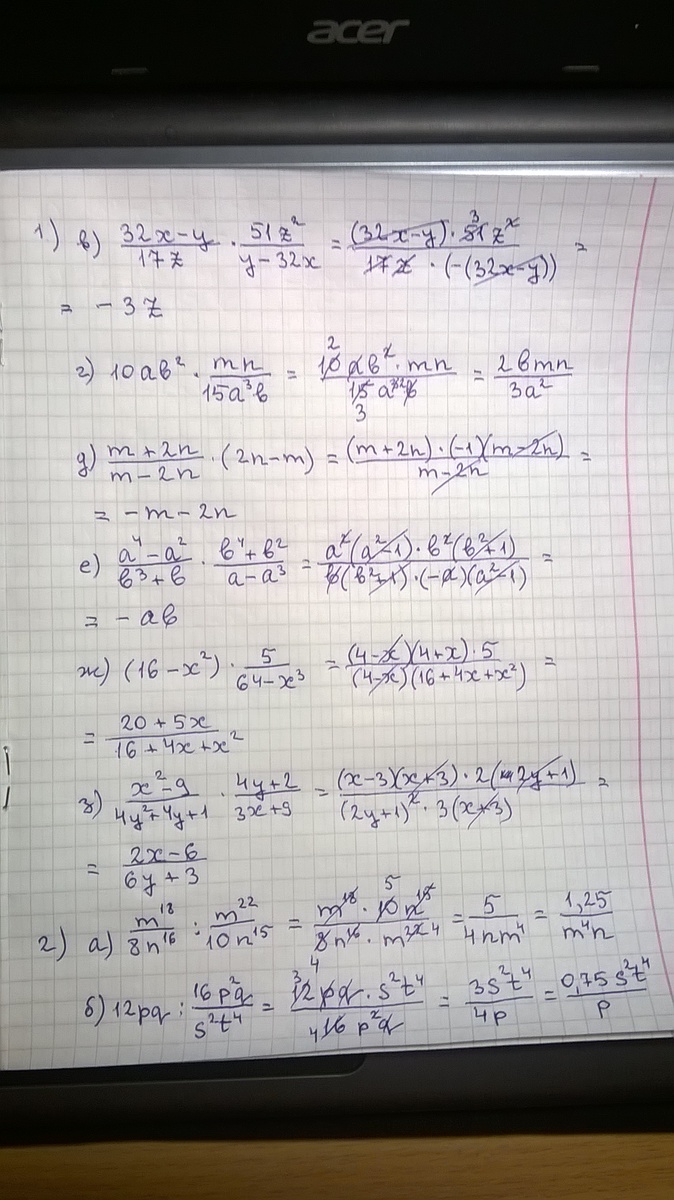 acer
1) в) (32x-y)/(17z) · (51z²)/(y-32x) = ((32x-y) · 51 3 z²)/(17z · (-(32x-y))) =
= -3z
г) 10ab² · (mn)/(15a³b) = (10 2 ab² · mn)/(15 3 a³ ² b) = (2bmn)/(3a²)
д) (m+2n)/(m-2n) · (2n-m) = ((m+2n) · (-1)(m-2n))/(m-2n) =
= -m-2n
е) (a⁴-a²)/(b³+b) · (b⁴+b²)/(a-a³) = (a²(a²-1) · b²(b²+1))/(b(b²+1) · (-a)(a²-1)) =
= -ab
ж) (16-x²) · 5/(64-x³) = ((4-x)(4+x) · 5)/((4-x)(16+4x+x²)) =
= (20+5x)/(16+4x+x²)
з) (x²-9)/(4y²+4y+1) · (4y+2)/(3x+9) = ((x-3)(x+3) · 2(2y+1))/((2y+1)² · 3(x+3)) =
= (2x-6)/(6y+3)
2) а) m¹⁸/(8n¹⁶) : m²²/(10n¹⁵) = (m¹⁸ · 10 5 n¹⁵)/(8 4 n¹⁶ · m²² ⁴) = 5/(4nm⁴) = 1,25/(m⁴n)
б) 12pq : (16p²q)/(s²t⁴) = (12 3 pq · s²t⁴)/(16 4 p²q) = (3s²t⁴)/(4p) = (0,75s²t⁴)/p